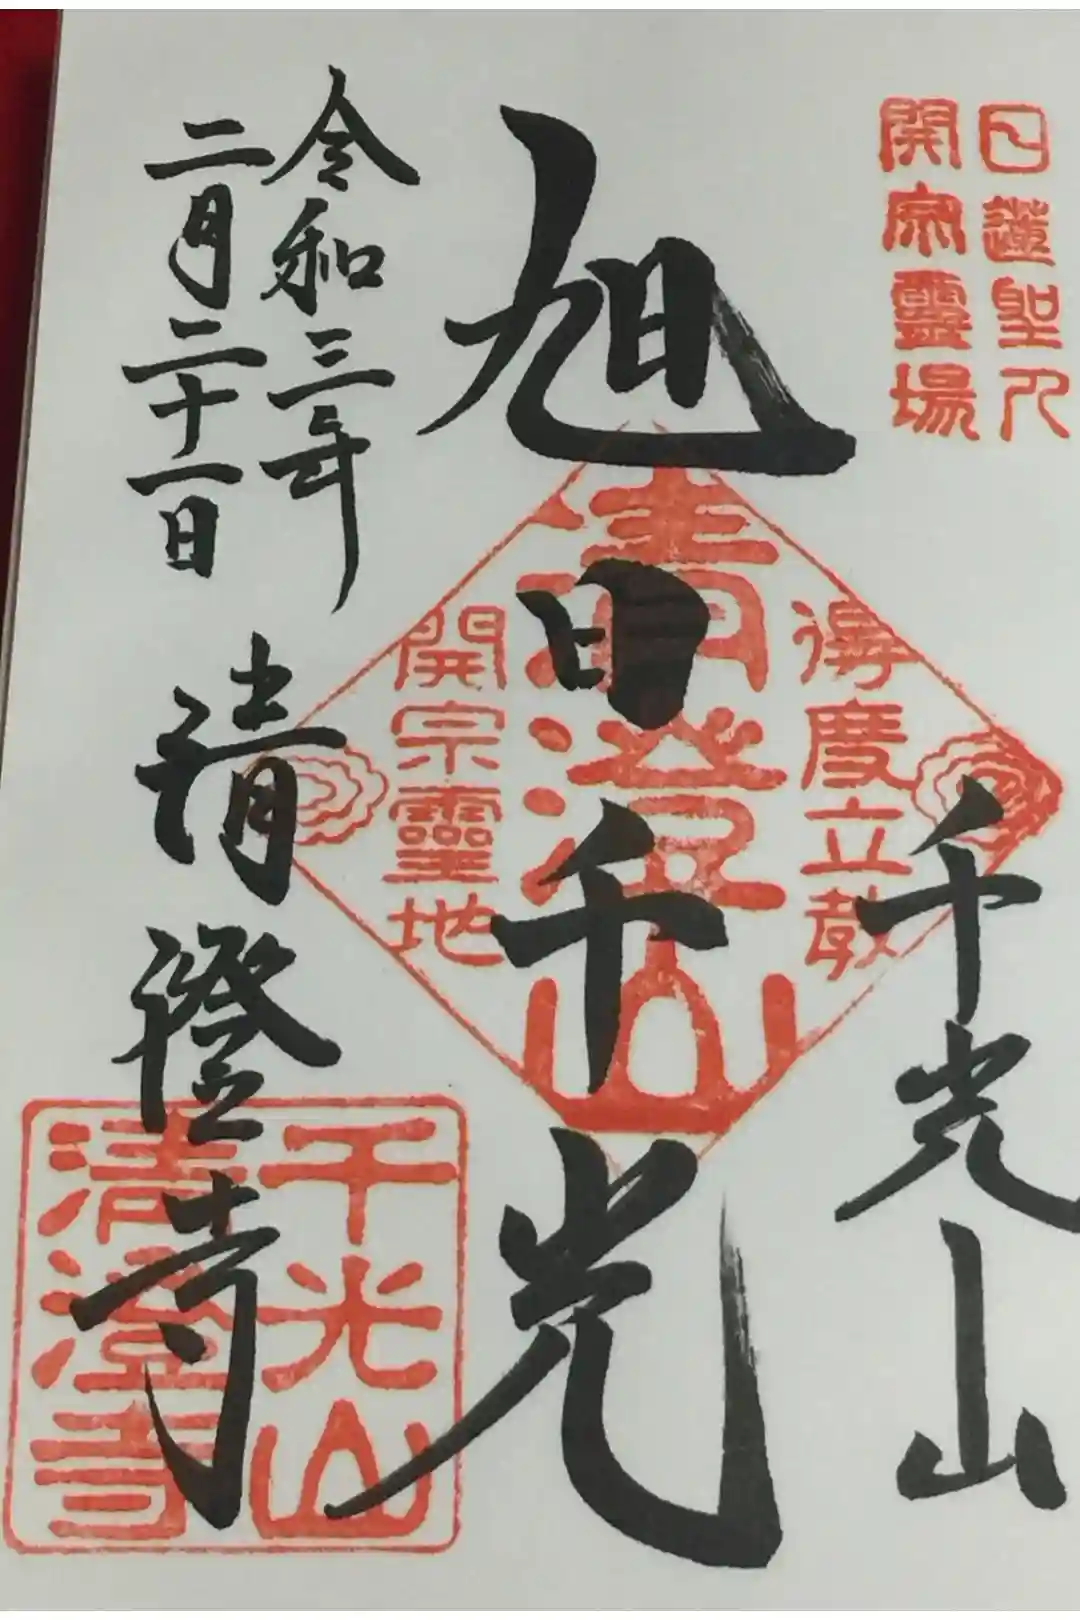 日蓮聖人
開宗靈場
千光山
旭日千光
得度立教
清澄山
開宗靈地
令和三年
二月二十一日
清澄寺
千光山
清澄寺